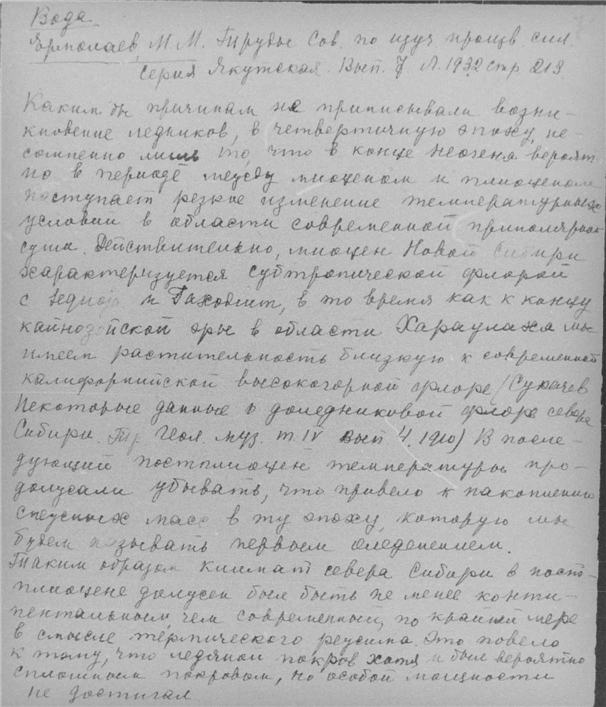 Вода
Ярмолаев, М.М. Труды Сов. по изуч произв. сил.
серия Якутская. Вып. 7 Л. 1932 стр 213.
Каким бы причинам не приписывали возни-
кновение ледников, в четвертичную эпоху не-
сомненно лишь то, что в конце неогена вероят
но в периоде между миоценом и плиоценом
наступает резкое изменение температурных
условий в области современной приполярной
суши. Действительно, миоцен Новой Сибири
характеризуется субтропической флорой
с и в то время как к концу
кайнозойской эры в области Хараулаха мы
имеем растительность близкую к современной
калифорнийской высокогорной флоре (Сукачев
Некоторые данные о доледниковой флоре севера
Сибири. Тр Геол. муз. т IV вып 4. 1910) В после-
дующий постплиоцен температуры про-
должали убывать, что привело к накоплению
снежных масс в ту эпоху, которую мы
будем называть первым оледенением.
Таким образом климат севера Сибири в пост-
плиоцене должен был быть не менее конти-
нентальным, чем современный, по крайней мере
в смысле термического режима. Это повело
к тому, что ледяной покров хотя и был вероятно
сплошным покровом, но особой мощности
не достигал